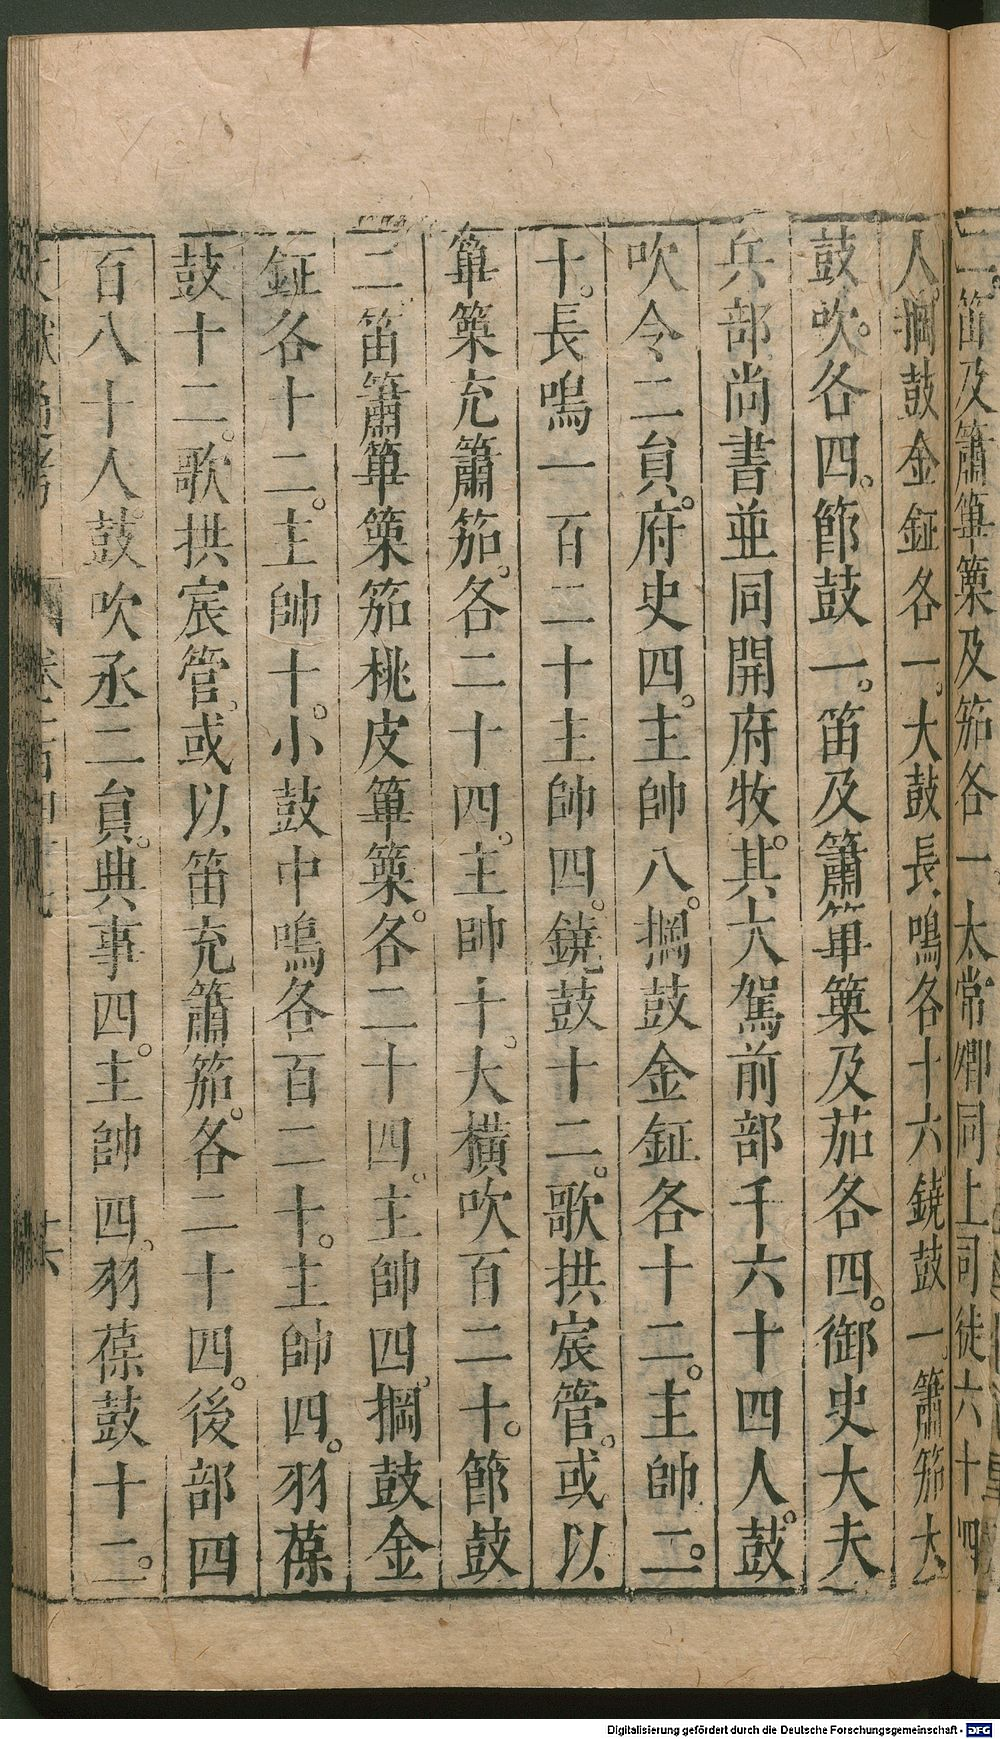 二。笛及簫篳篥及笳各一。太常卿同上司徒六十四
人。掆鼓金鉦各一。大鼓長鳴各十六鐃鼓一。簫笳大
鼓吹。各四。節鼓一。笛及簫篳篥及茄各四。御史大夫
兵部尚書並同開府牧。其大駕前部千六十四人。鼓
吹令二員。府史四。主帥八。掆鼓金鉦各十二。主帥二。
十。長鳴一百二十主帥四。鐃鼓十二。歌拱宸管。或以
篳篥充簫笳。各二十四。主帥十。大橫吹百二十。節鼓
二。笛簫篳篥笳桃皮篳篥。各二十四。主帥四。掆鼓金
鉦各十二。主帥十。小鼓中鳴各百二十。主帥四。羽葆
鼓十二。歌拱宸管。或以笛充簫笳。各二十四。後部四
百八十人。鼓吹丞二員。典事四。主帥四。羽葆鼓十二。
Digitalisierung gefördert durch die Deutsche Forschungsgemeinschaft - DFG